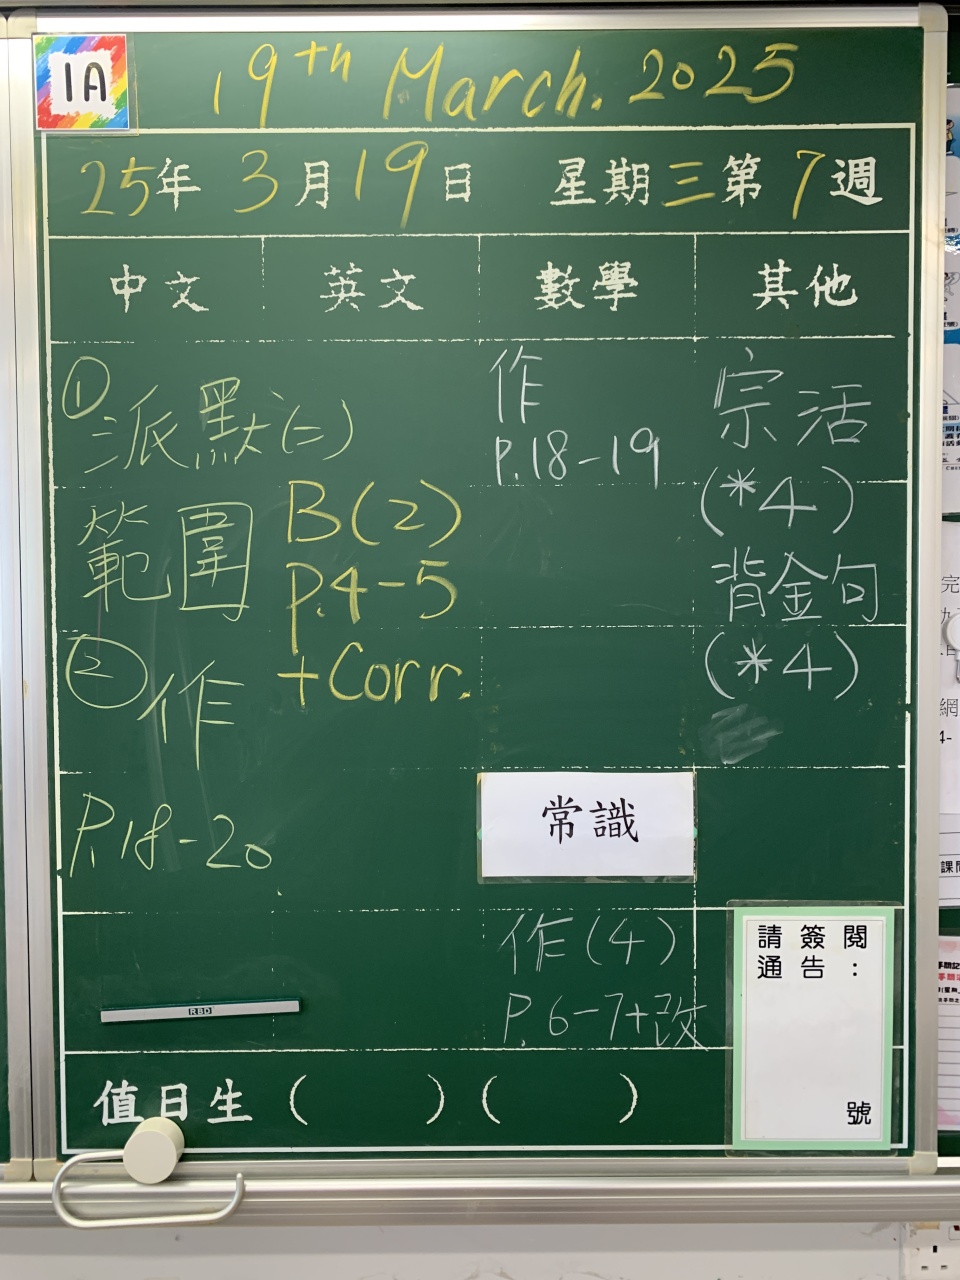 1A
19th March. 2025
25年 3月 19日 星期三 第 7 週
中文 英文 數學 其他
① 派默(二)
範圍
② 作
P.18-20
B(2)
P.4-5
+Corr.
作
P.18-19
常識
作(4)
P.6-7+改
宗活
(*4)
背金句
(*4)
請簽閱
通告：
號
RBD
值日生 ( ) ( )